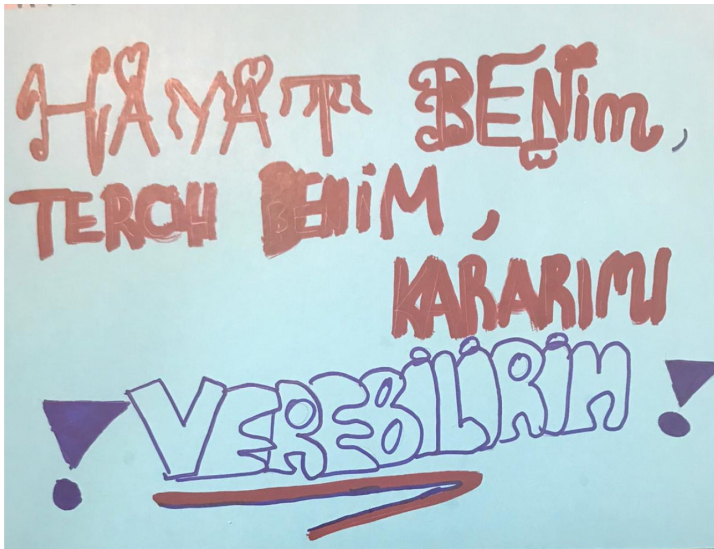 HAYAT BENİM,
TERCİH BENİM,
KARARIMI
! VEREBİLİRİM !